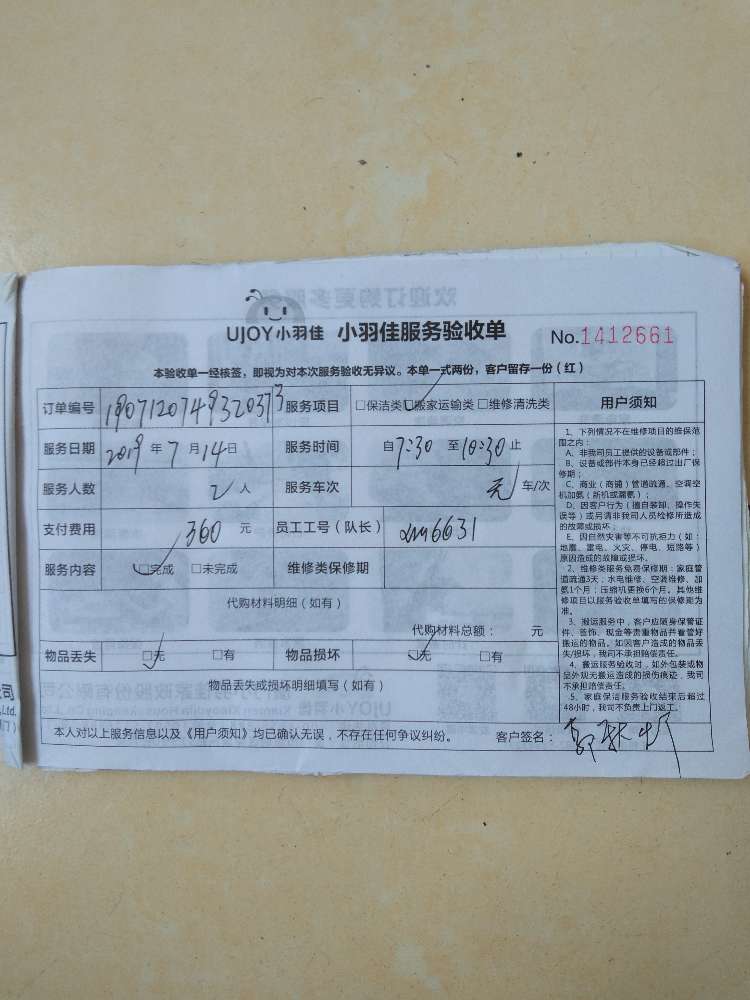 UJOY小羽佳 小羽佳服务验收单 No.1412661
本验收单一经核签，即视为对本次服务验收无异议。本单一式两份，客户留存一份（红）
订单编号 190712074932037 服务项目 □保洁类□搬家运输类□维修清洗类
服务日期 2019 年 7 月 14 日 服务时间 自 7:30 至 10:30 止
服务人数 2 人 服务车次 无 车/次
支付费用 360 元 员工工号（队长） xm6631
服务内容 □完成 □未完成 维修类保修期
代购材料明细（如有）
代购材料总额： 元
物品丢失 □无 □有 物品损坏 □无 □有
物品丢失或损坏明细填写（如有）
本人对以上服务信息以及《用户须知》均已确认无误，不存在任何争议纠纷。 客户签名：
用户须知
1、下列情况不在维修项目的维保范
围之内：
A、非我司员工提供的设备或部件；
B、设备或部件本身已经超过出厂保
修期；
C、商业（商铺）管道疏通、空调空
机加氨（新机或漏氨）；
D、因客户行为（擅自装卸、操作失
误等）或另请非我司人员检修所造成
的故障或损坏；
E、因自然灾害等不可抗拒力（如：
地震、雷电、火灾、停电、短路等）
原因造成的故障或损坏。
2、维修类服务免费保修期：家庭管
道疏通3天；水电维修、空调维修、加
氨1个月；压缩机更换6个月。其他维
修项目以服务验收单填写的保修期为
准。
3、搬运服务中，客户应随身保管证
件、首饰、现金等贵重物品并看管好
搬运的物品。如因客户造成的物品丢
失/损坏，我司不承担赔偿责任。
4、搬运服务验收时，如外包装或物
品外观无搬运造成的损伤痕迹，我司
不承担赔偿责任。
5、家庭保洁服务验收结束后超过
48小时，我司不负责上门返工。